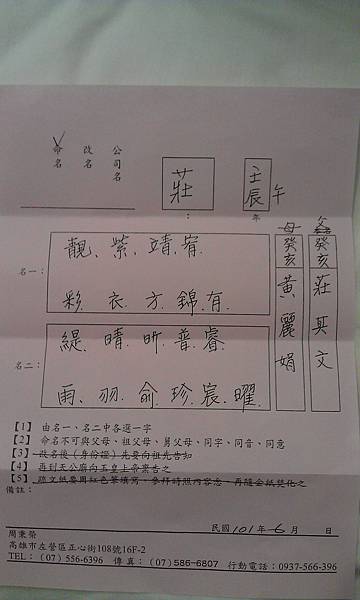 命名
改名
公司名
莊
壬辰年
午
名一：
靚、紫、靖、宥
彩、衣、方、錦、有
名二：
緹、晴、昕、普、睿
雨、羽、俞、珍、宸、曜
父 癸亥 莊其文
母 癸亥 黃麗娟
【1】 由名一、名二中各選一字
【2】 命名不可與父母、祖父母、舅父母、同字、同音、同意
【3】 改名後（身份證）先要向祖先告知
【4】 再到天公廟向玉皇上帝稟告之
【5】 疏文紙要用紅色筆填寫，參拜時照內容念，再隨金紙焚化之
備註：
民國101年6月 日
周秉榮
高雄市左營區正心街108號16F-2
TEL：（07）556-6396 傳真：（07）586-6807 行動電話：0937-566-396